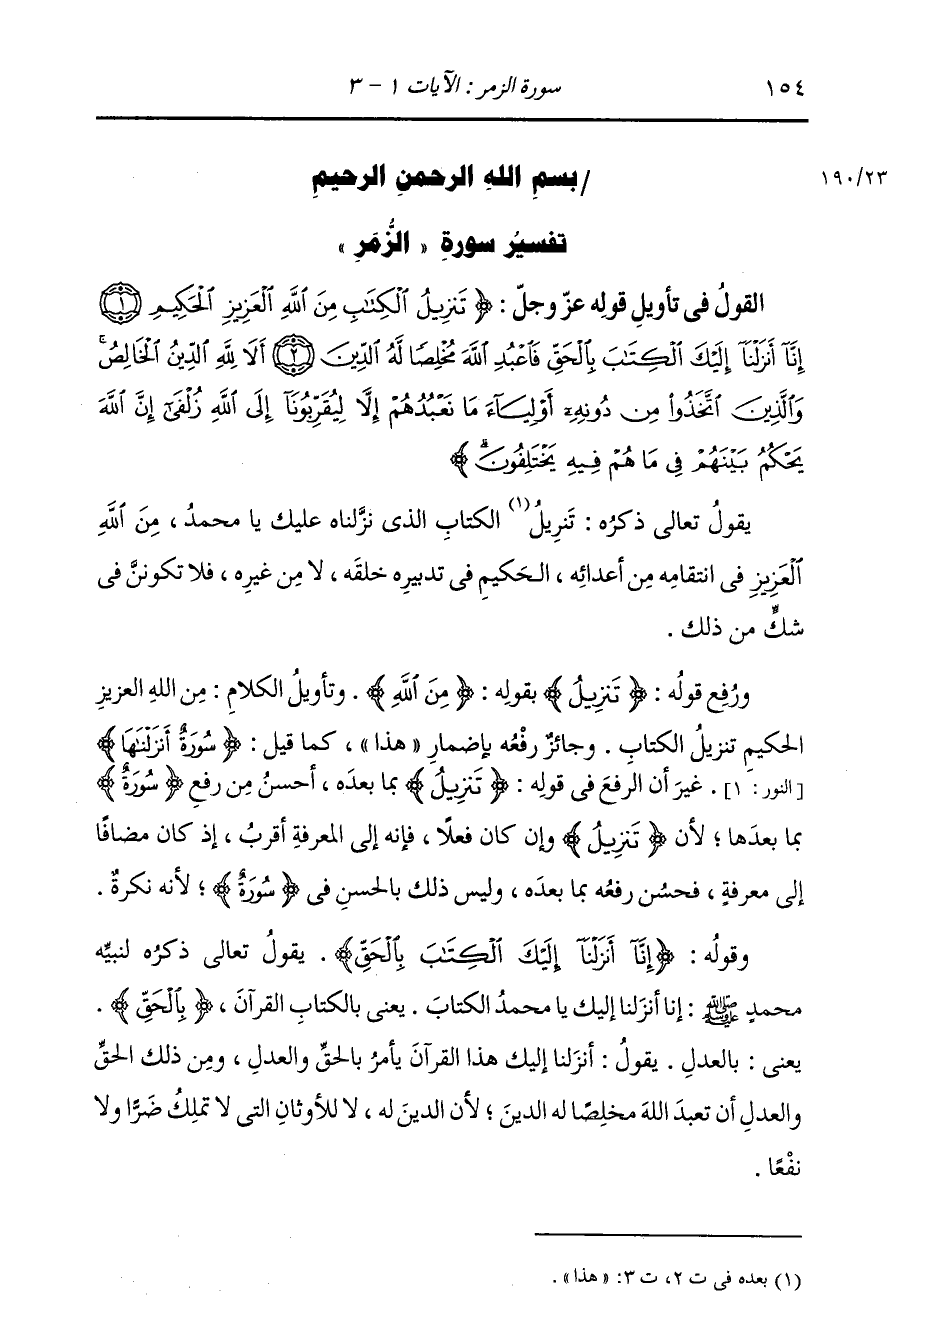 ١٥٤ سورة الزمر : الآيات ١ - ٣
١٩٠/٢٣ /بسمِ اللهِ الرحمنِ الرحيمِ
تفسيرُ سورةِ « الزُّمَرِ »
القولُ فى تأويلِ قولِه عزّ وجلّ : ﴿ تَنزِيلُ ٱلْكِتَٰبِ مِنَ ٱللَّهِ ٱلْعَزِيزِ ٱلْحَكِيمِ ۝١
إِنَّآ أَنزَلْنَآ إِلَيْكَ ٱلْكِتَٰبَ بِٱلْحَقِّ فَٱعْبُدِ ٱللَّهَ مُخْلِصًا لَّهُ ٱلدِّينَ ۝٢ أَلَا لِلَّهِ ٱلدِّينُ ٱلْخَالِصُۚ
وَٱلَّذِينَ ٱتَّخَذُوا۟ مِن دُونِهِۦٓ أَوْلِيَآءَ مَا نَعْبُدُهُمْ إِلَّا لِيُقَرِّبُونَآ إِلَى ٱللَّهِ زُلْفَىٰٓ إِنَّ ٱللَّهَ
يَحْكُمُ بَيْنَهُمْ فِى مَا هُمْ فِيهِ يَخْتَلِفُونَۗ ﴾
يقولُ تعالى ذكرُه : تَنزِيلُ(١) الكتابِ الذى نزَّلناه عليك يا محمدُ ، مِنَ ٱللَّهِ
ٱلْعَزِيزِ فى انتقامِه مِن أعدائِه ، الحَكيمِ فى تدبيرِه خلقَه ، لا مِن غيرِه ، فلا تكوننَّ فى
شكٍّ من ذلك .
ورُفِع قولُه : ﴿ تَنزِيلُ ﴾ بقولِه : ﴿ مِنَ ٱللَّهِ ﴾ . وتأويلُ الكلامِ : مِن اللهِ العزيزِ
الحكيمِ تنزيلُ الكتابِ . وجائزٌ رفْعُه بإضمارِ « هذا » ، كما قيل : ﴿ سُورَةٌ أَنزَلْنَٰهَا ﴾
[ النور : ١ ] . غيرَ أن الرفعَ فى قولِه : ﴿ تَنزِيلُ ﴾ بما بعدَه ، أحسنُ مِن رفعِ ﴿ سُورَةٌ ﴾
بما بعدَها ؛ لأن ﴿ تَنزِيلُ ﴾ وإن كان فعلًا ، فإنه إلى المعرفةِ أقربُ ، إذ كان مضافًا
إلى معرفةٍ ، فحسُن رفعُه بما بعدَه ، وليس ذلك بالحسنِ فى ﴿ سُورَةٌ ﴾ ؛ لأنه نكرةٌ .
وقولُه : ﴿إِنَّآ أَنزَلْنَآ إِلَيْكَ ٱلْكِتَٰبَ بِٱلْحَقِّ﴾ . يقولُ تعالى ذكرُه لنبيِّه
محمدٍ ﷺ : إنا أنزَلنا إليك يا محمدُ الكتابَ . يعنى بالكتابِ القرآنَ ، ﴿ بِٱلْحَقِّ ﴾ .
يعنى : بالعدلِ . يقولُ : أنزَلنا إليك هذا القرآنَ يأمرُ بالحقِّ والعدلِ ، ومِن ذلك الحقِّ
والعدلِ أن تعبدَ اللهَ مخلِصًا له الدينَ ؛ لأن الدينَ له ، لا للأوثانِ التى لا تملِكُ ضَرًّا ولا
نفْعًا .
(١) بعده فى ت ٢، ت ٣: « هذا » .